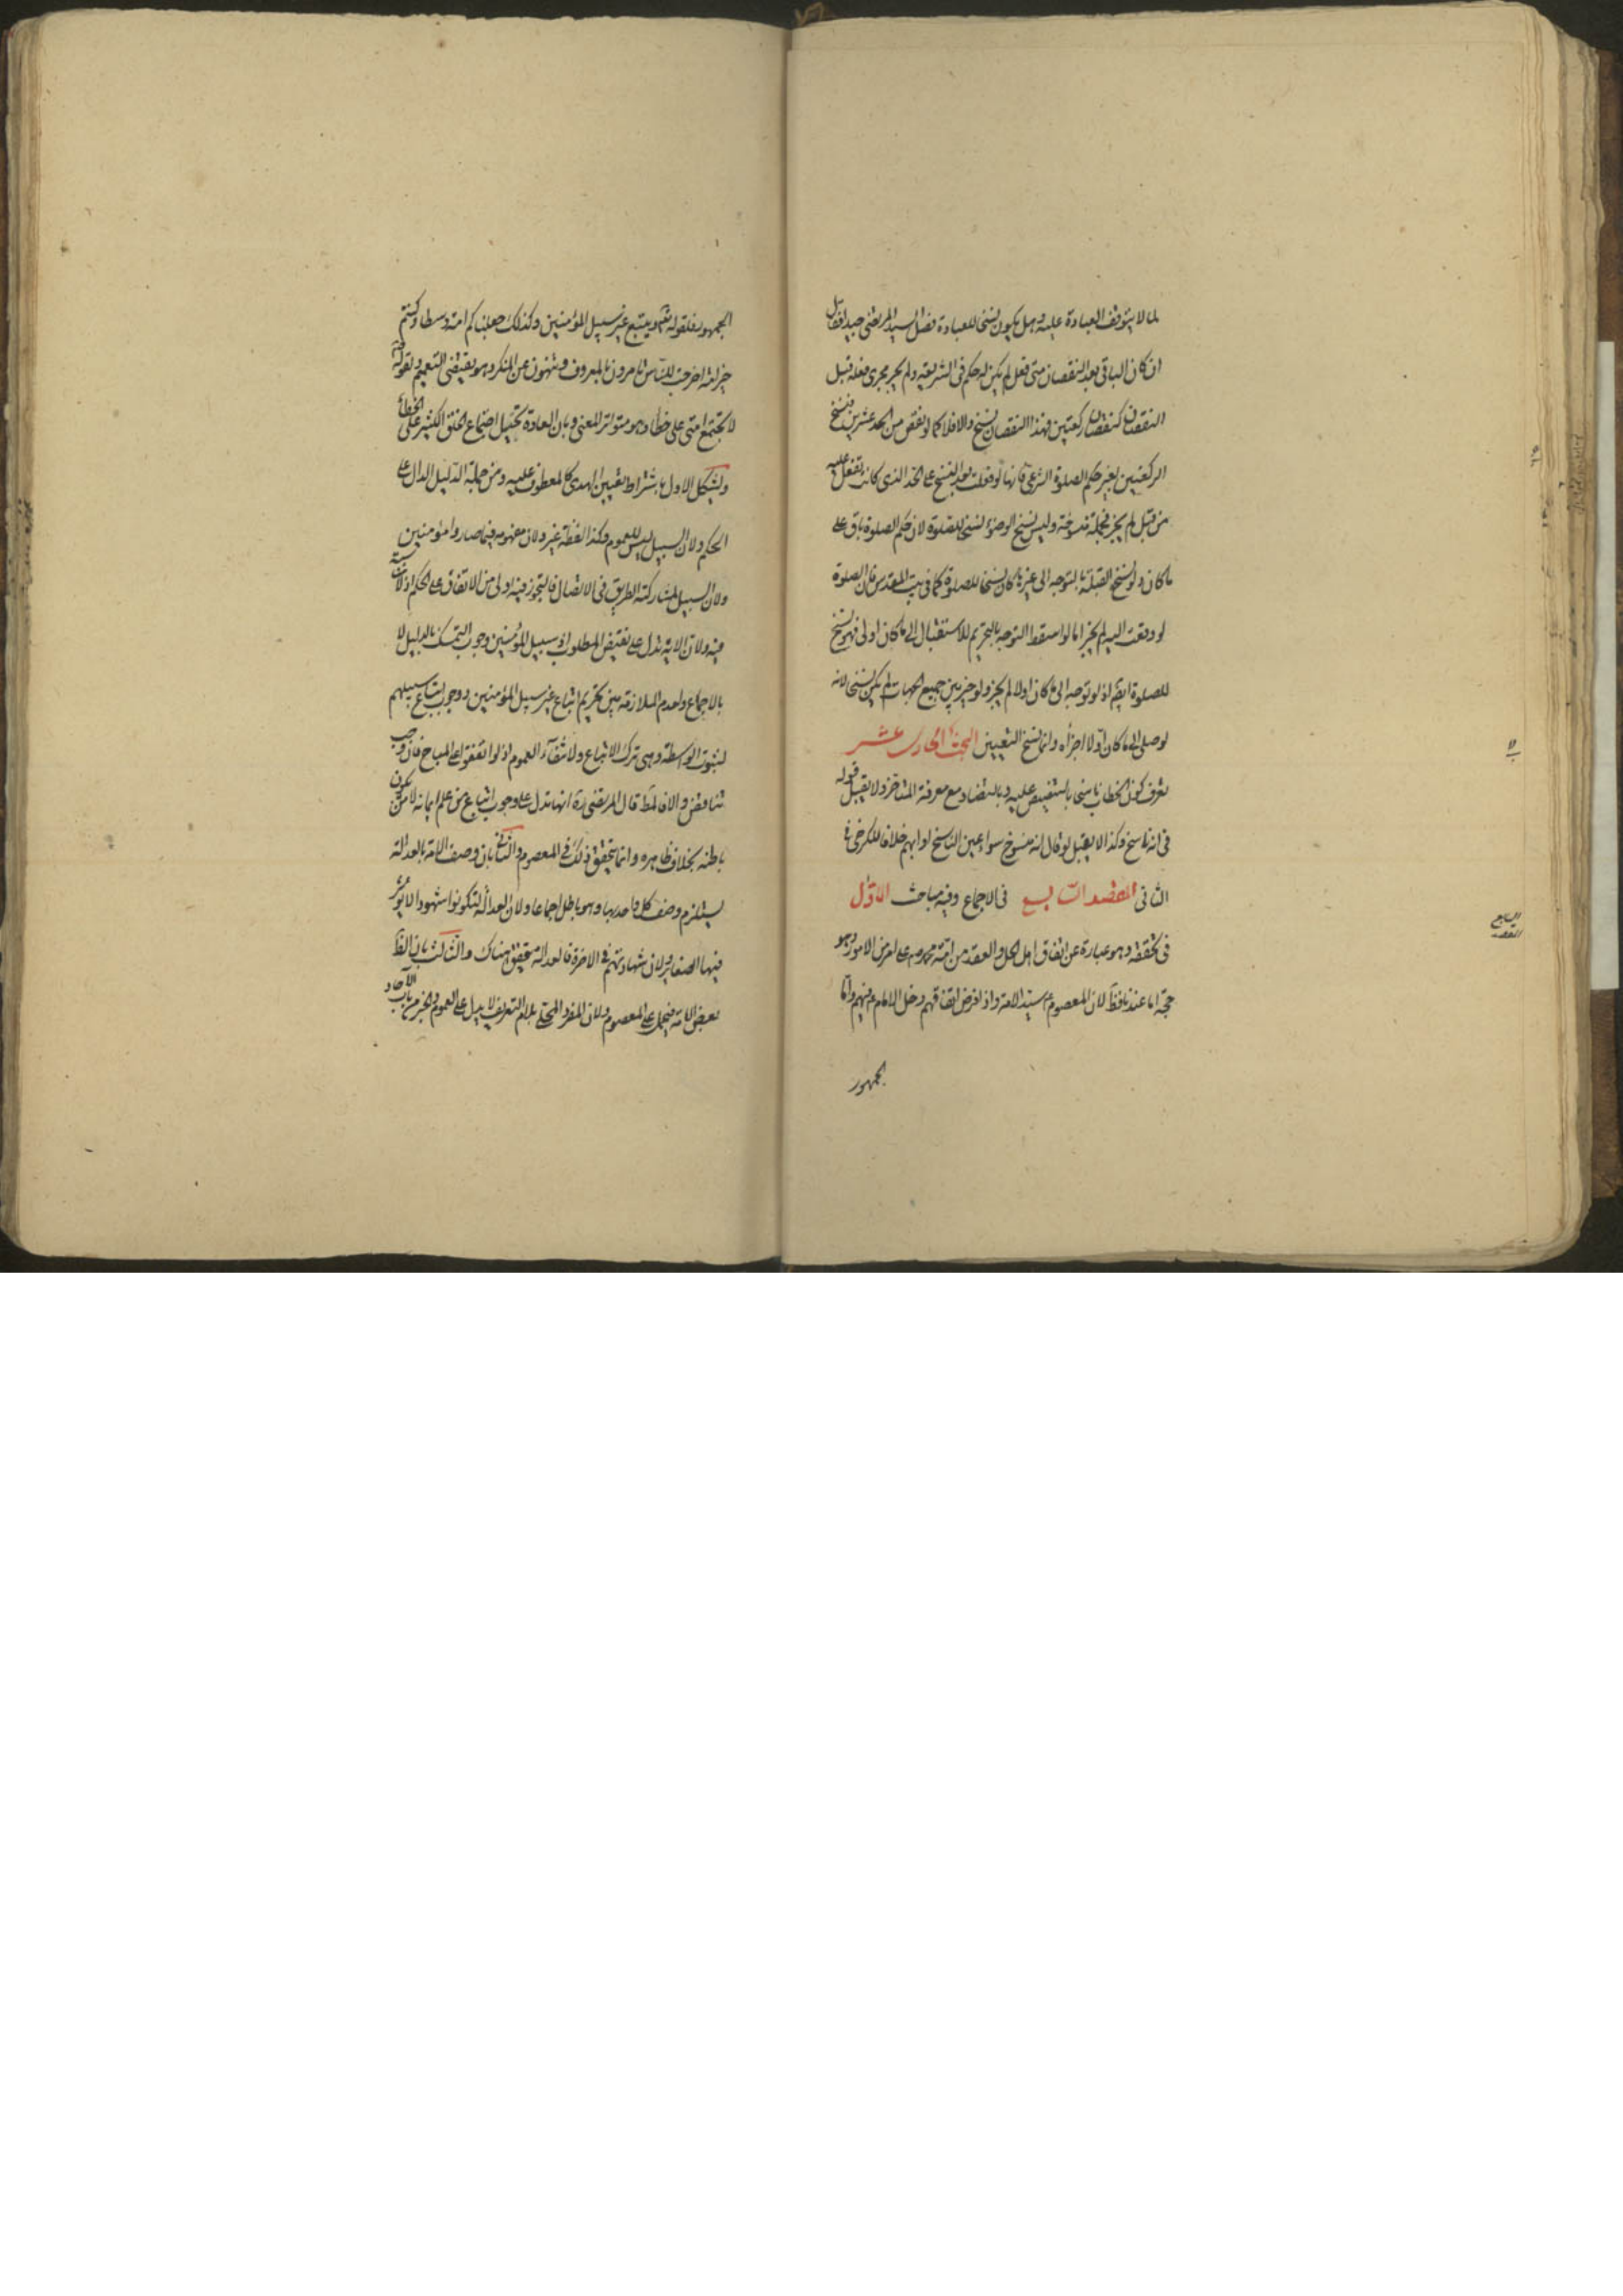 لما لا يتوقف العبادة عليه وهل يكون نسخا للعبادة فصل السيد المرتضى جيدا فقال
ان كان الباقى بعد النقصان متى فعل لم يكن له حكم فى الشريعة ولم يجر مجرى فعله قبل
النقصان كنقصان ركعتين فهذا النقصان نسخ والا فلا كما لو نقص من الحد عشرين فنسخ
الركعتين يغير حكم الصلوة الشرعى فانها لو فعلت بعد النسخ على الحد الذى كانت تفعل عليه
من قبل لم يجز فجملته منسوخة وليس نسخ الوضوء نسخا للصلوة لان حكم الصلوة باق على
ما كان ولو نسخ القبلة بالتوجه الى غيرها كان نسخا للصلوة كما فى بيت المقدس فان الصلوة
لو وقعت اليه لم يجز اما لو اسقط التوجه بالتحريم للاستقبال الى ما كان اولى فهو نسخ
للصلوة ايضا اذ لو توجه الى ما كان اولا لم يجز ولو خير بين جميع الجهات لم يكن نسخا لانه
لو صلى الى ما كان اولا اجزأه وانما نسخ التعيين البحث الحادى عشر
يعرف كون الخطاب ناسخا بالتنصيص عليه وبالتضاد مع معرفة المتاخر ولا يقبل قوله
فى انه ناسخ وكذا لا يقبل لو قال انه منسوخ سواء عين الناسخ او ابهم خلافا للكرخى فى
الثانى المقصد السابع فى الاجماع وفيه مباحث الاول
فى تحققه وهو عبارة عن اتفاق اهل الحل والعقد من امة محمد ص على امر من الامور وهو
حجة اما عندنا فظ لان المعصوم ع سيد الامة واذا فرض اتفاقهم دخل الامام ع فيهم واما
الجمهور
السابع
المقصد
الجمهور فلقوله تع ويتبع غير سبيل المؤمنين وكذلك جعلناكم امة وسطا وكنتم
خير امة اخرجت للناس تامرون بالمعروف وتنهون عن المنكر وهو يقتضى التعميم ولقوله ص
لا تجتمع امتى على خطأ وهو متواتر المعنى وبان العادة تحيل اجتماع الخلق الكثير على الخطأ
ويشكل الاول باشتراط تعيين الهدى كالمعطوف عليه ومن جملته الدليل الدال على
الحكم ولان السبيل ليس للعموم وكذا لفظة غير ولان مفهومه فيما صاروا به مؤمنين
ولان السبيل لمشاركته الطريق فى الاتصال فالتجوز فيه اولى من الاتفاق على الحكم اذ لا مناسبة
فيه ولان الاية تدل على نقيض المطلوب اذ سبيل المؤمنين وجوب التمسك بالدليل لا
بالاجماع ولعدم الملازمة بين تحريم اتباع غير سبيل المؤمنين ووجوب اتباع سبيلهم
لثبوت الواسطة وهى ترك الاتباع ولانتفاء العموم اذ لو اتفقوا على المباح فان وجب
تناقض والا فالمط قال المرتضى ره انها تدل على وجوب اتباع من علم ايمانه لا من يكون
باطنه بخلاف ظاهره وانما يتحقق ذلك فى المعصوم والثانى بان وصف الامة بالعدالة
يستلزم وصف كل واحد بها وهو باطل اجماعا ولان العدالة لتكونوا شهودا لا يؤثر
فيها الصغاير ولان شهادتهم فى الاخرة فالعدالة متحقق هناك والثالث بان الظ
بعض الامة فيحمل على المعصوم ولان المفرد المحلى بلام التعريف لا يدل على العموم والخبر من باب الآحاد